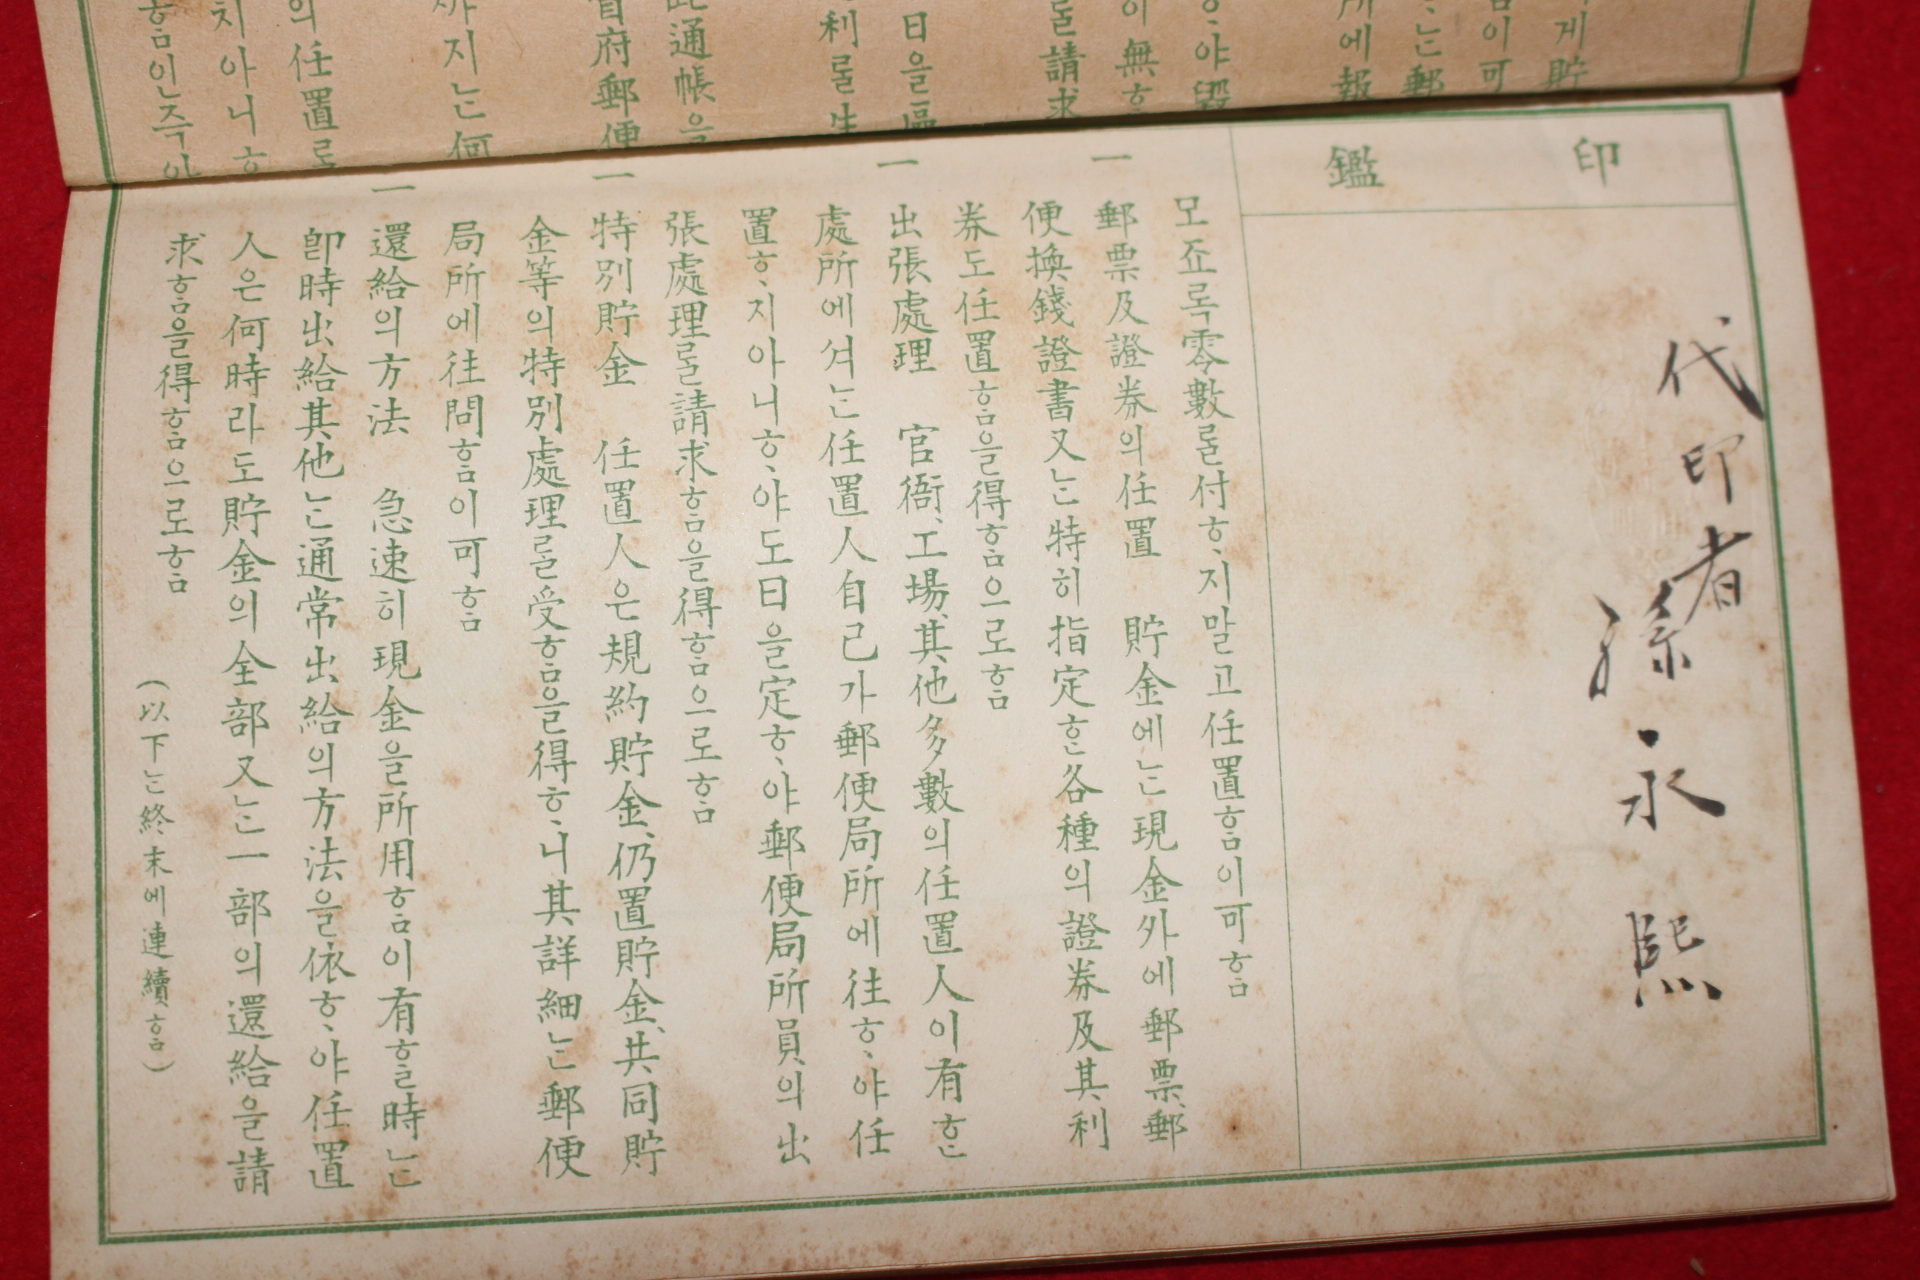 게貯
이可
ᄂᆞᆫ郵
에報
ᄒᆞ야毀
이無ᄒᆞ
ᄅᆞᆯ請求
日을區
利ᄅᆞᆯ生
此通帳을
府郵便
까지ᄂᆞᆫ何
의任置로
치아니ᄒᆞ
ᄒᆞᆷ인즉아
印鑑
代印者 孫永熙
모죠록零數ᄅᆞᆯ付ᄒᆞ지말고任置ᄒᆞᆷ이可ᄒᆞᆷ
一 郵票及證券의任置 貯金에ᄂᆞᆫ現金外에郵票、郵
便換錢證書又ᄂᆞᆫ特히指定ᄒᆞᆫ各種의證券及其利
券도任置ᄒᆞᆷ을得ᄒᆞᆷ으로ᄒᆞᆷ
一 出張處理 官衙、工場、其他多數의任置人이有ᄒᆞᆫ
處所에셔ᄂᆞᆫ任置人自己가郵便局所에往ᄒᆞ야任
置ᄒᆞ지아니ᄒᆞ야도日을定ᄒᆞ야郵便局所員의出
張處理ᄅᆞᆯ請求ᄒᆞᆷ을得ᄒᆞᆷ으로ᄒᆞᆷ
一 特別貯金 任置人은規約貯金、仍置貯金、共同貯
金等의特別處理ᄅᆞᆯ受ᄒᆞᆷ을得ᄒᆞ니其詳細ᄂᆞᆫ郵便
局所에往問ᄒᆞᆷ이可ᄒᆞᆷ
一 還給의方法 急速히現金을所用ᄒᆞᆷ이有ᄒᆞᆯ時ᄂᆞᆫ
卽時出給其他ᄂᆞᆫ通常出給의方法을依ᄒᆞ야任置
人은何時라도貯金의全部又ᄂᆞᆫ一部의還給을請
求ᄒᆞᆷ을得ᄒᆞᆷ으로ᄒᆞᆷ
(以下ᄂᆞᆫ終末에連續ᄒᆞᆷ)